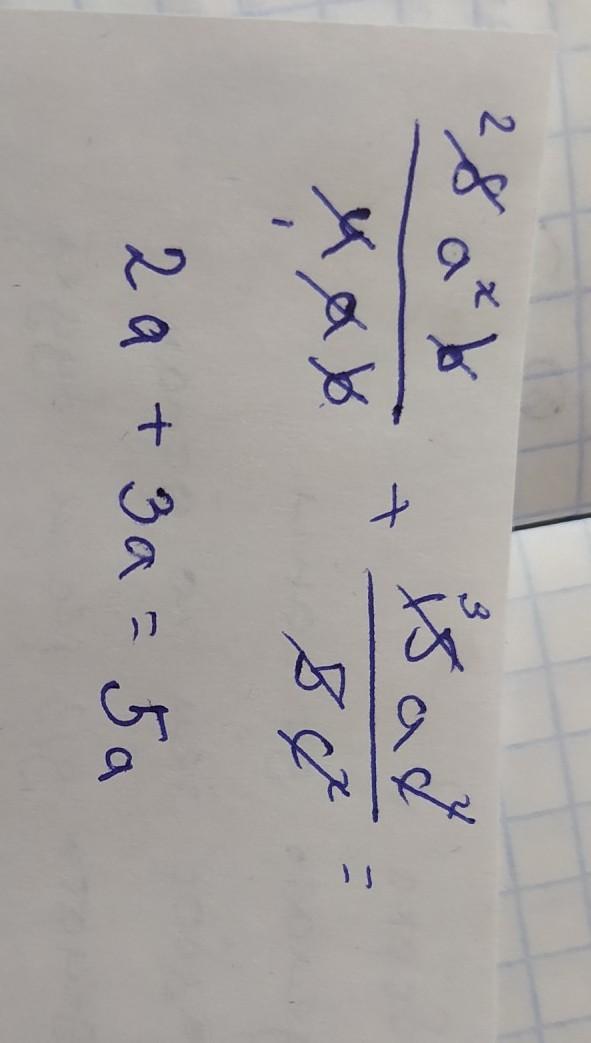 ²8a²b / ₁4ab + ³15ac² / 5c² =
2a + 3a = 5a